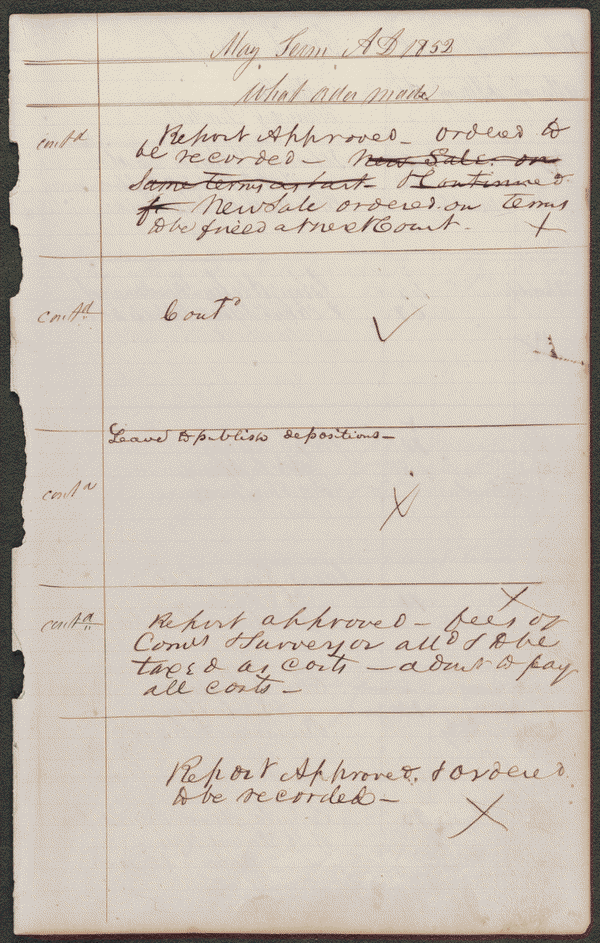 May Term A D 1852
What order made
cont.d Report Approved – ordered to
be recorded – New Sale on
Same terms as last – & Continued
for New Sale ordered on terms
to be fixed at next Court – X
cont.d Cont.d ✓
Leave to publish depositions –
cont.d X
X
cont.d Report approved – fees of
Comrs & Surveyor all.d & to be
taxed as costs – admr to pay
all costs –
Report Approved. & ordered
to be recorded – X